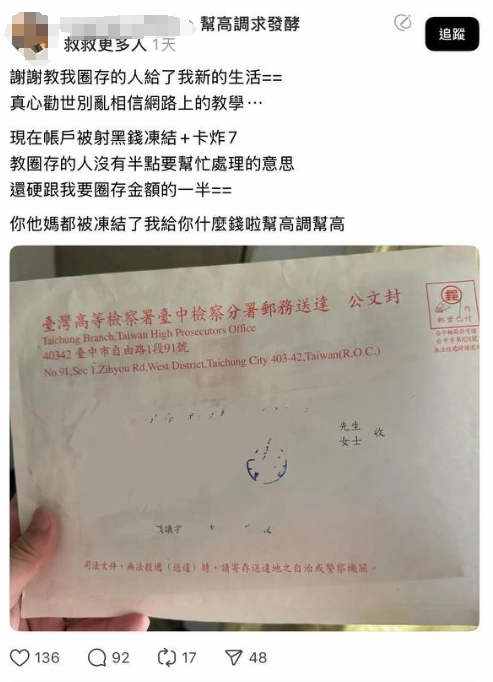 幫高調求發酵
追蹤
救救更多人 1天
謝謝教我圈存的人給了我新的生活==
真心勸世別亂相信網路上的教學⋯
現在帳戶被射黑錢凍結+卡炸7
教圈存的人沒有半點要幫忙處理的意思
還硬跟我要圈存金額的一半==
你他媽都被凍結了我給你什麼錢啦幫高調幫高
臺灣高等檢察署臺中檢察分署郵務送達 公文封
Taichung Branch,Taiwan High Prosecutors Office
40342 臺中市自由路1段91號
No.91,Sec 1.Zihyou Rd,West District,Taichung City 403-42,Taiwan(R.O.C.)
郵
內
郵資已付
先生
女士 收
司法文件,無法投遞(送達)時,請寄存送達地之自治或警察機關。
136 92 17 48